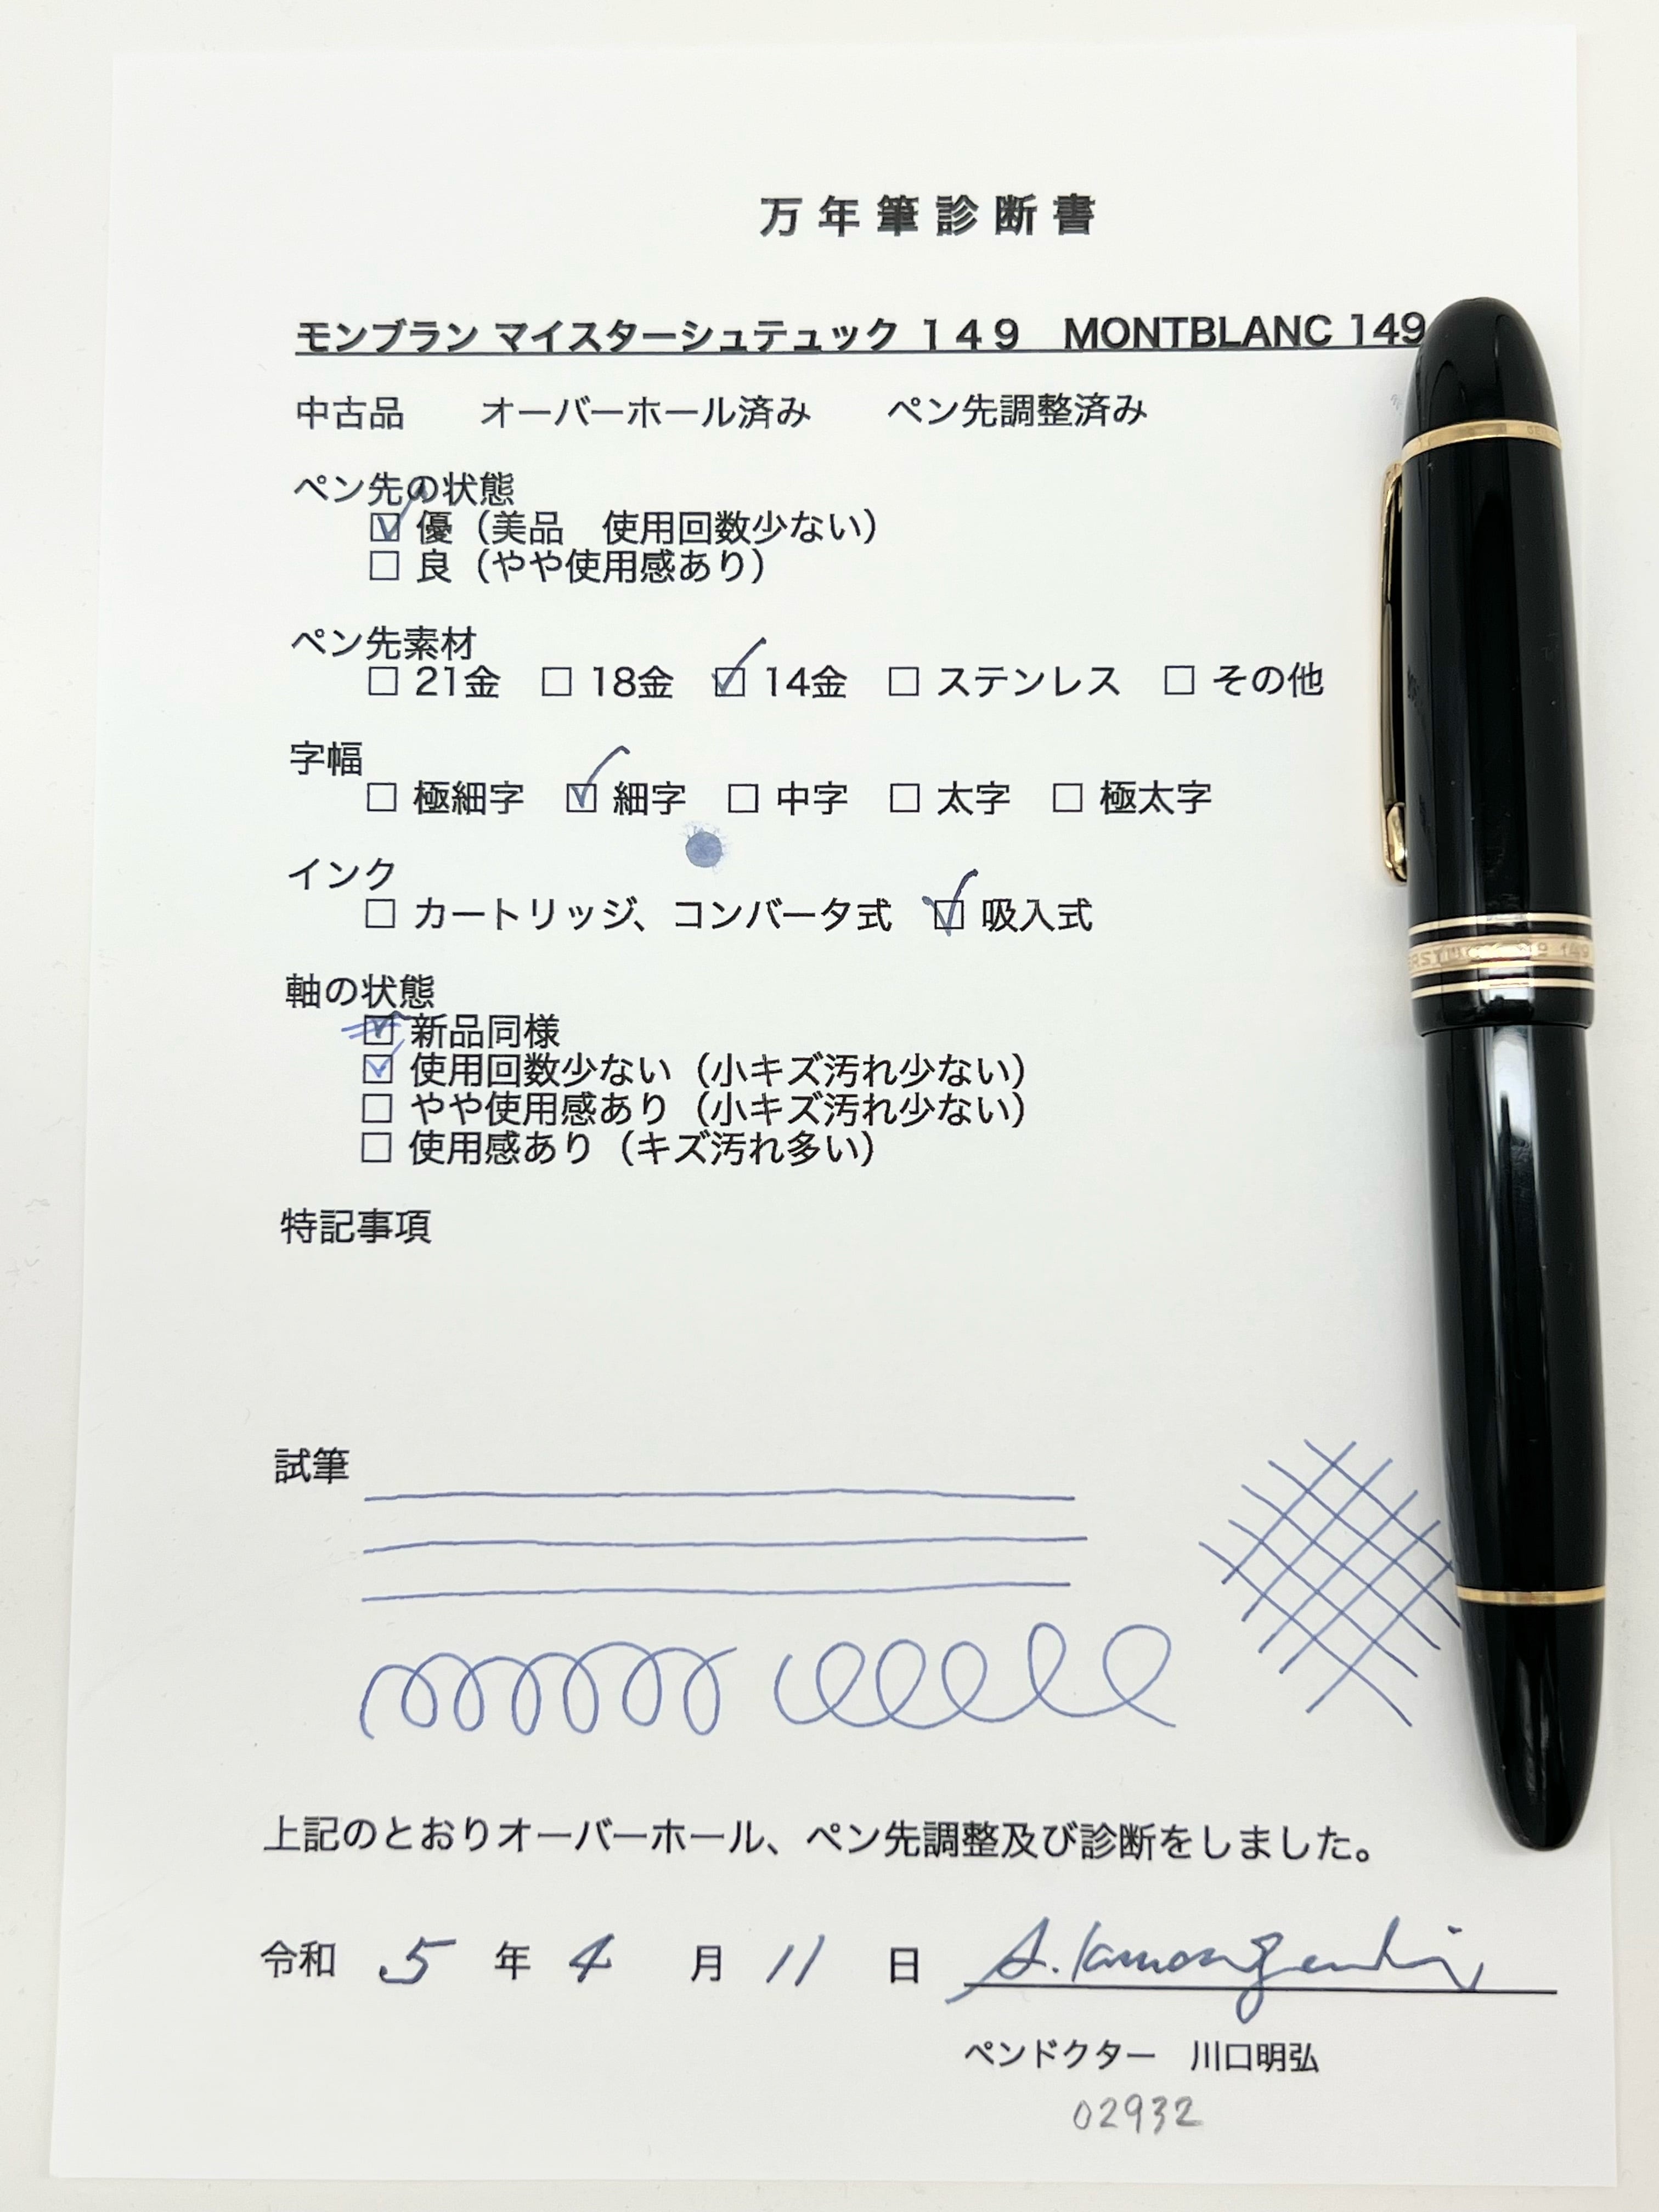 万年筆診断書
モンブラン マイスターシュテュック １４９　MONTBLANC 149
中古品　　オーバーホール済み　　ペン先調整済み
ペン先の状態
☑ 優（美品　使用回数少ない）
☐ 良（やや使用感あり）
ペン先素材
☐ 21金　☐ 18金　☑ 14金　☐ ステンレス　☐ その他
字幅
☐ 極細字　☑ 細字　☐ 中字　☐ 太字　☐ 極太字
インク
☐ カートリッジ、コンバータ式　☑ 吸入式
軸の状態
☑ 新品同様
☑ 使用回数少ない（小キズ汚れ少ない）
☐ やや使用感あり（小キズ汚れ少ない）
☐ 使用感あり（キズ汚れ多い）
特記事項
試筆
上記のとおりオーバーホール、ペン先調整及び診断をしました。
令和 5 年 4 月 11 日
ペンドクター　川口明弘
02932
149